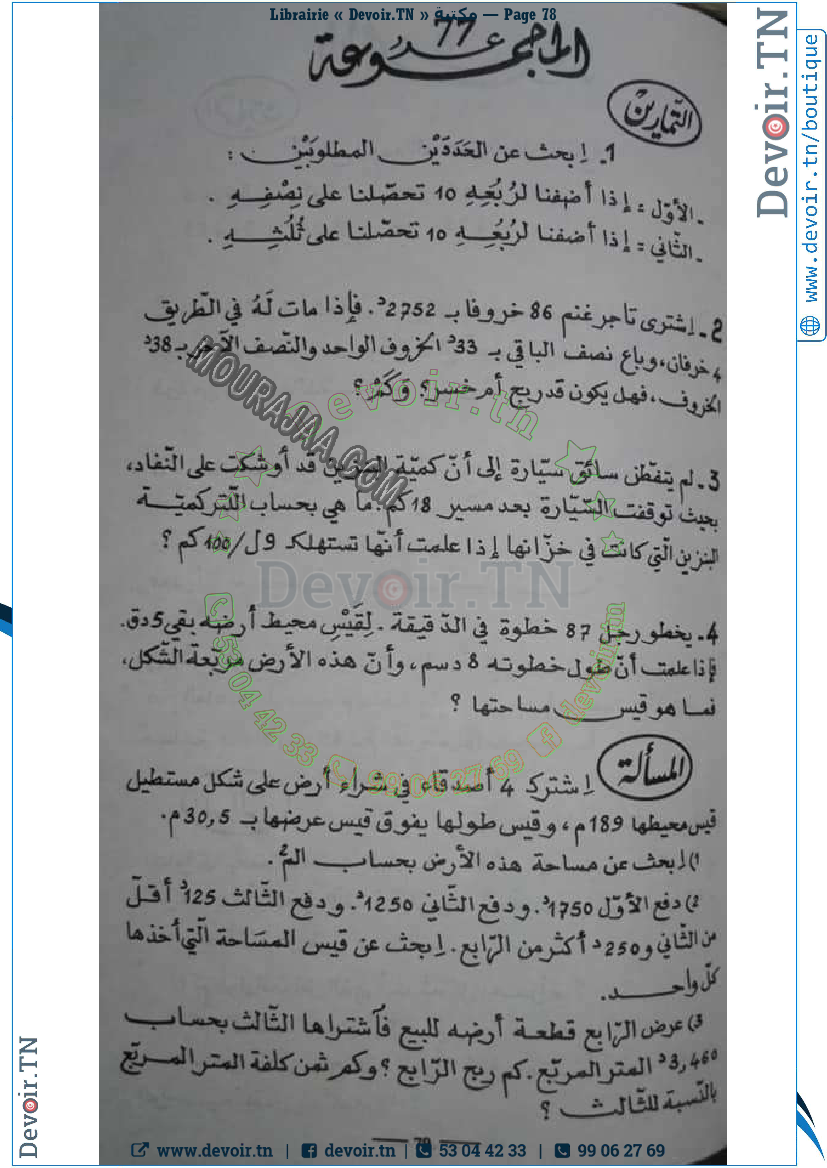 Librairie « Devoir.TN » مكتبة — Page 78
المجموعة عدد 77
التّمارين
1. إبحث عن العَدَدَيْن المطلوبَيْن :
- الأوّل : إذا أضفنا لرُبُعِهِ 10 تحصّلنا على نِصْفِهِ .
- الثّاني : إذا أضفنا لرُبُعِهِ 10 تحصّلنا على ثُلُثِهِ .
2- إشترى تاجر غنم 86 خروفا بـ 2752د. فإذا مات لَهُ في الطّريق
4 خرفان، وباع نصف الباقي بـ 33د الخروف الواحد والنّصف الآخر بـ 38د
الخروف، فهل يكون قد ربح أم خسر؟ وَكَمْ؟
3- لم يتفطّن سائق سيّارة إلى أنّ كميّة البنزين قد أوشكت على النّفاد،
بحيث توقفت السّيّارة بعد مسير 18 كم. ما هي بحساب اللّتر كميّة
البنزين الّتي كانت في خزّانها إذا علمت أنّها تستهلك 9ل/100 كم ؟
4- يخطو رجل 87 خطوة في الدّقيقة. لِقَيْسِ محيط أرضه بقي 5دق.
فإذا علمت أنّ طول خطوته 8 دسم، وأنّ هذه الأرض مربّعة الشّكل،
فما هو قيس مساحتها ؟
المسألة
إشترك 4 أصدقاء في شراء أرض على شكل مستطيل
قيس محيطها 189 م، وقيس طولها يفوق قيس عرضها بـ 30,5 م.
1) إبحث عن مساحة هذه الأرض بحساب الم2.
2) دفع الأوّل 1750د. ودفع الثّاني 1250د. ودفع الثّالث 125د أقلّ
من الثّاني و250د أكثر من الرّابع. إبحث عن قيس المسَاحة الّتي أخذها
كلّ واحد.
3) عرض الرّابع قطعة أرضه للبيع فاشتراها الثّالث بحساب
3,460د المتر المربّع. كم ربح الرّابع ؟ وكم ثمن كلفة المتر المربّع
بالنّسبة للثّالث ؟
MOURAJAA.COM
devoir.tn
Devoir.TN
53 04 42 33
99 06 27 69
devoir.tn
Devoir.TN
www.devoir.tn/boutique
Devoir.TN
www.devoir.tn | devoir.tn | 53 04 42 33 | 99 06 27 69